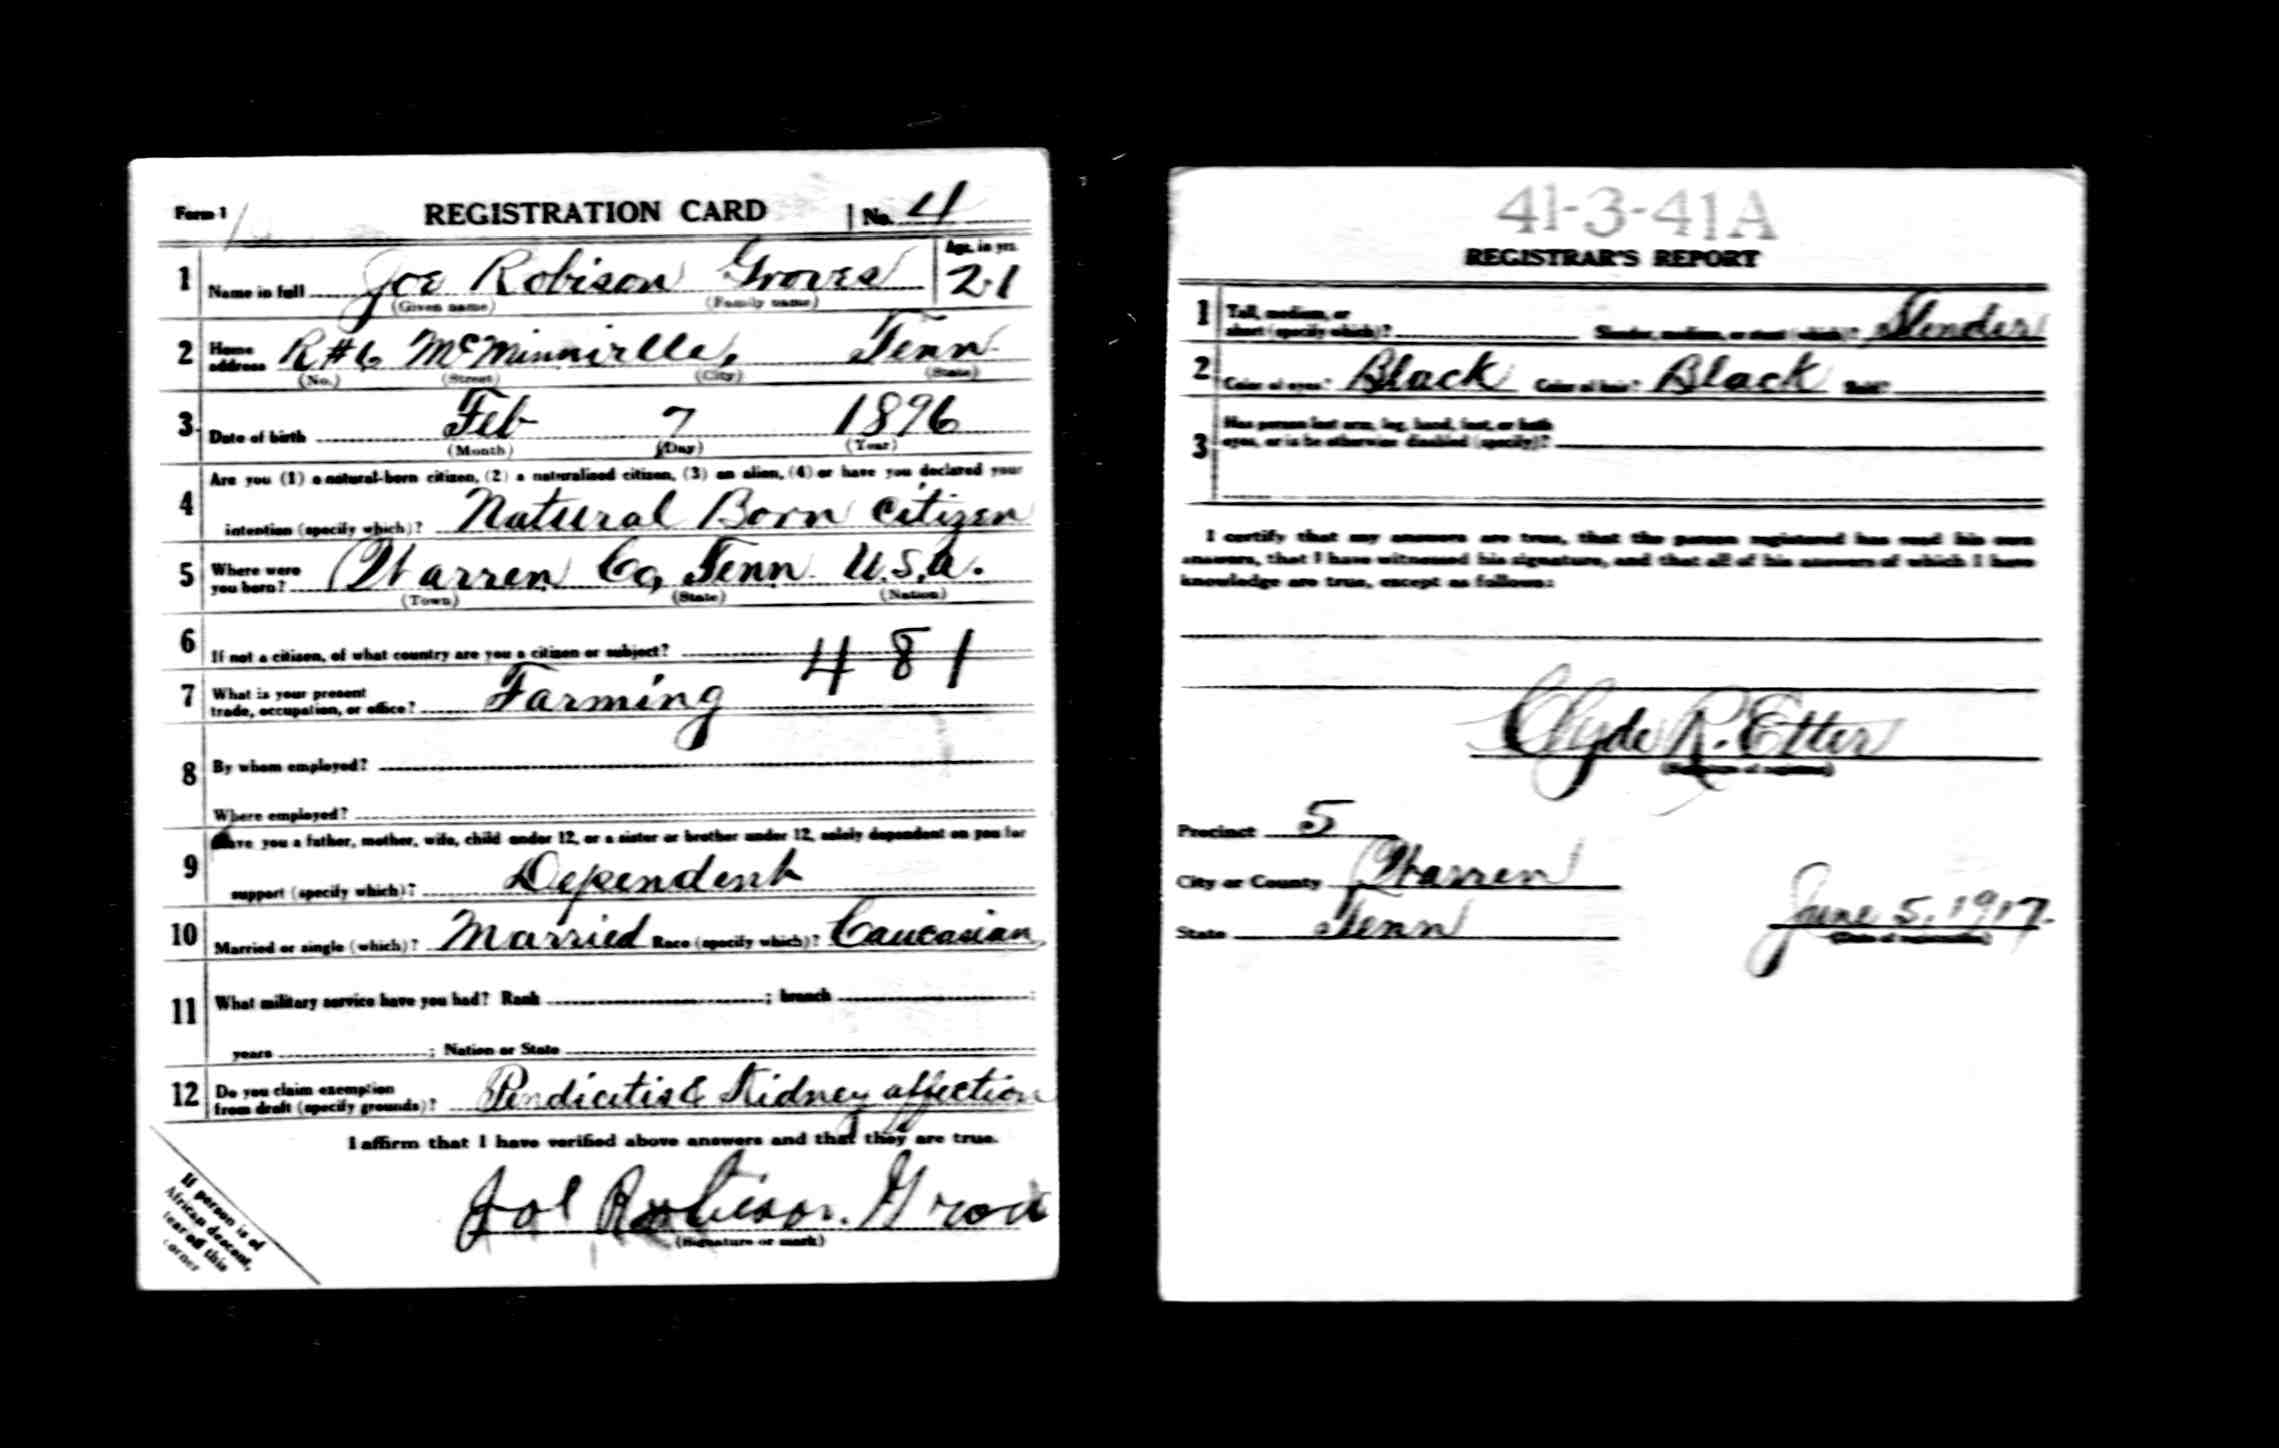 Form 1 REGISTRATION CARD No. 4
1 Name in full Joe Robison Groves Age, in yrs. 21
(Given name) (Family name)
2 Home address R#6 McMinnville, Tenn
(No.) (Street) (City) (State)
3 Date of birth Feb 7 1896
(Month) (Day) (Year)
4 Are you (1) a natural-born citizen, (2) a naturalized citizen, (3) an alien, (4) or have you declared your
intention (specify which)? Natural Born Citizen
5 Where were you born? Warren Co, Tenn U.S.A.
(Town) (State) (Nation)
6 If not a citizen, of what country are you a citizen or subject?
481
7 What is your present trade, occupation, or office? Farming
8 By whom employed?
Where employed?
9 Have you a father, mother, wife, child under 12, or a sister or brother under 12, solely dependent on you for
support (specify which)? Dependent
10 Married or single (which)? Married Race (specify which)? Caucasian
11 What military service have you had? Rank ; branch
years ; Nation or State
12 Do you claim exemption from draft (specify grounds)? Pendicitis & Kidney affection
I affirm that I have verified above answers and that they are true.
Joe Robison Groves
(Signature or mark)
If person is of
African descent,
tear off this
corner
41-3-41A
REGISTRAR'S REPORT
1 Tall, medium, or short (specify which)? Slender, medium, or stout (which)? Slender
2 Color of eyes? Black Color of hair? Black Bald?
3 Has person lost arm, leg, hand, foot, or both
eyes, or is he otherwise disabled (specify)?
I certify that my answers are true, that the person registered has read his own
answers, that I have witnessed his signature, and that all of his answers of which I have
knowledge are true, except as follows:
Clyde R. Etter
(Signature of registrar)
Precinct 5
City or County Warren
State Tenn June 5, 1917.
(Date of registration)